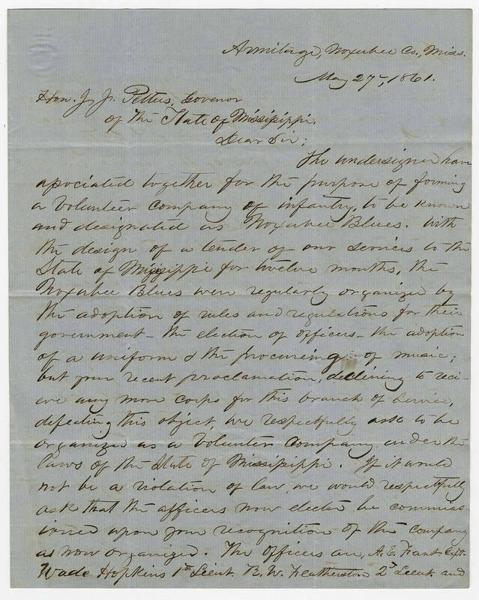 Armitage, Noxubee Co, Miss.
May 27, 1861.
Hon. J. J. Pettus, Govenor
of The State of Mississippi.
Dear Sir;
The undersigned have
associated together for the purpose of forming
a volunteer company of infantry, to be known
and designated as Noxubee Blues. With
the design of a tender of our services to the
State of Mississippi for twelve months, the
Noxubee Blues were regularly organized by
the adoption of rules and regulations for their
government - the election of officers - the adoption
of a uniform & the procuring of music;
but your recent proclamation, declining to recei-
ve any more corps for this branch of Service,
defeating this object, we respectfully ask to be
organized as a Volunteer Company under the
laws of the State of Mississippi. If it would
not be a violation of law, we would respectfully
ask that the officers now elected be commiss
ioned upon your recognition of the company
as now organized. The officers are, Capt.
Wade Hopkins 1st Lieut. B. W. Featherston 2d Lieut and